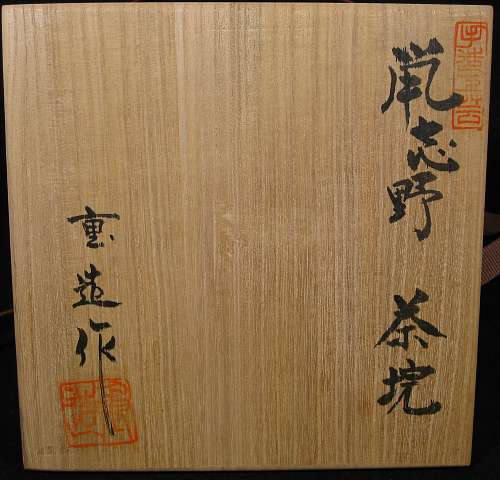 鼠志野 茶埦
重造作